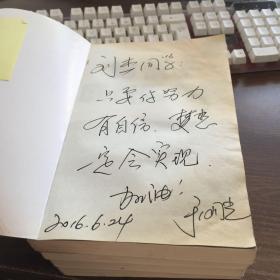 刘杰同学：
只要你努力
有自信，梦想
一定会实现．
加油！
2016.6.24